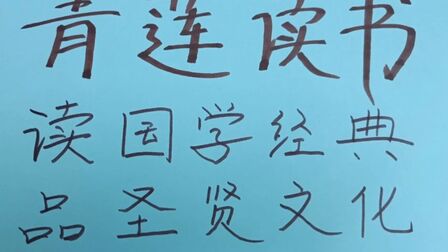 青莲读书
读国学经典
品圣贤文化